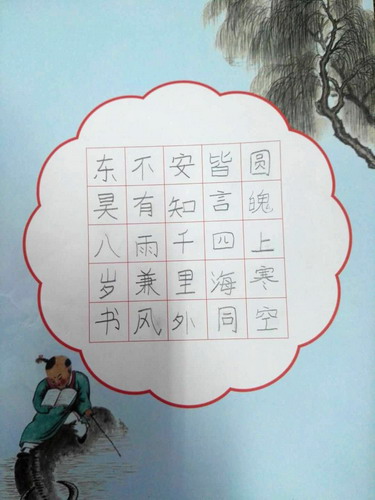 圆魄上寒空
皆言四海同
安知千里外
不有雨兼风
东昊八岁书